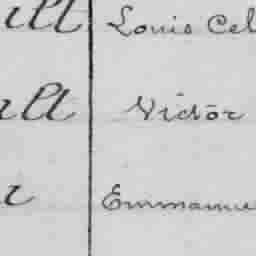 ult Louis Cel
ult Victor
r Emmanue